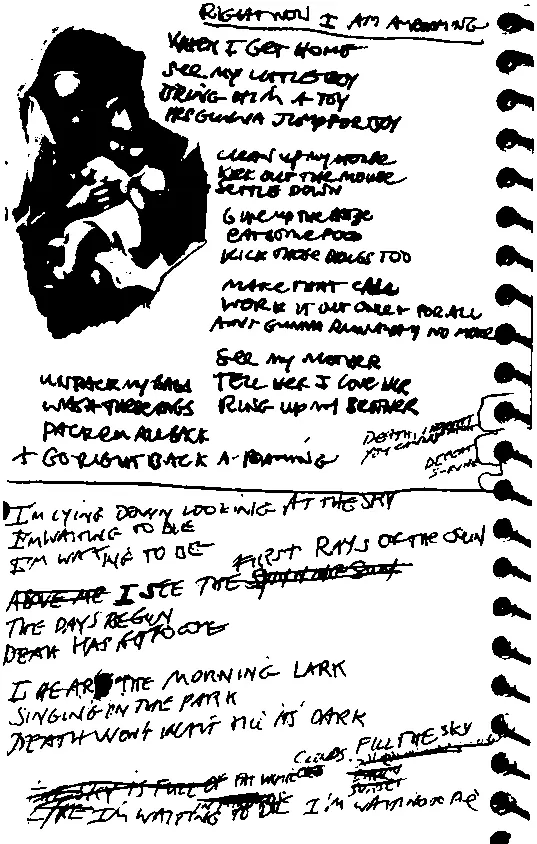 RIGHT NOW I AM A ROAMING
WHEN I GET HOME
SEE MY LITTLE BOY
BRING HIM A TOY
HE'S GUNNA JUMP FOR JOY
CLEAN UP MY HOUSE
KICK OUT THE MOUSE
SETTLE DOWN
GIVE UP THE BOOZE
EAT SOME FOOD
KICK THOSE DRUGS TOO
MAKE THAT CALL
WORK IT OUT ONCE + FOR ALL
AIN'T GUNNA RUNAWAY NO MORE
SEE MY MOTHER
TELL HER I LOVE HER
RING UP MY BROTHER
UNPACK MY BAGS
WASH THESE RAGS
PACK EM ALL BACK
+ GO RIGHT BACK A-ROAMING
DEATH
I'M LYING DOWN LOOKING AT THE SKY
I'M WAITING TO DIE
I'M WAITING TO DIE
ABOVE ME I SEE THE FIRST RAYS OF THE SUN
THE DAYS BEGUN
DEATH HAS GOT TO COME
I HEAR THE MORNING LARK
SINGING IN THE PARK
DEATH WON'T WAIT TILL ITS DARK
CLOUDS FILL THE SKY
THE SKY IS FULL OF FAT WHITE
SUNSET
I'M WAITING TO DIE I'M WAITING TO DIE